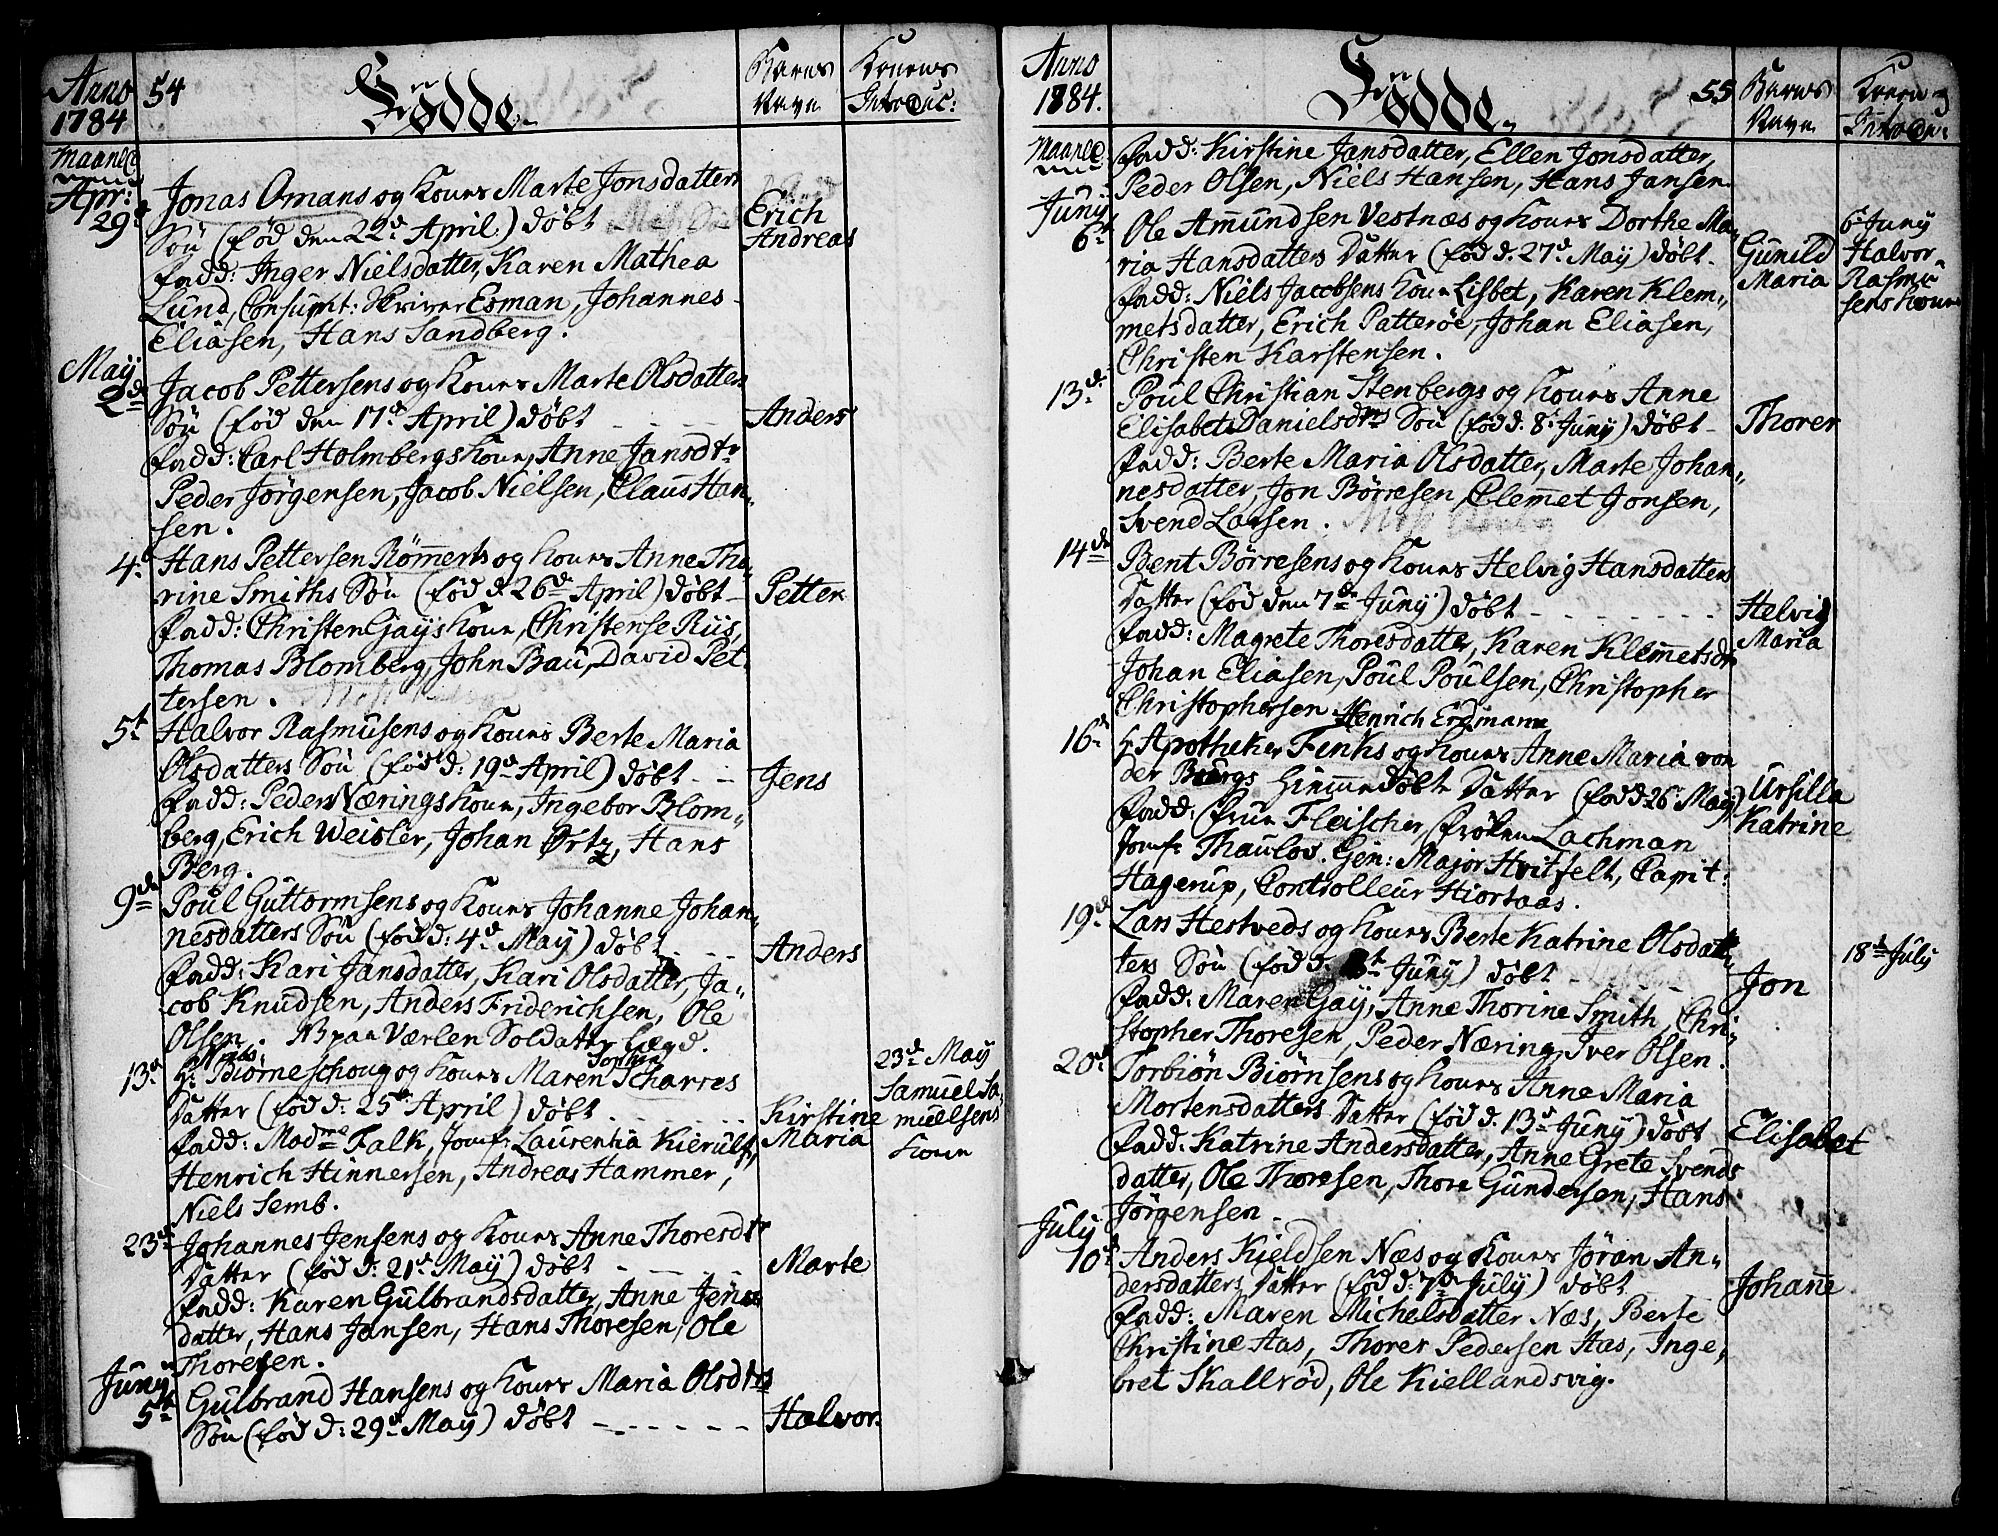 Anno 1784
54
Fødde
Barns Navn
Konens Introduc:
Maaned
Apr: 29de
Jonas Omans og Kones Marte Jonsdatters
Søn (fød den 22d. April) døbt
Erich Andreas
Fadd: Inger Nielsdatter, Karen Mathea
Lund, Consumt: Skriver Esman, Johannes
Eliasen, Hans Sandberg.
May 2de
Jacob Pettersens og Kones Marte Olsdatters
Søn (fød den 17d. April) døbt
Anders
Fadd: Carl Holmbergs Kone, Anne Jansdtr
Peder Jørgensen, Jacob Nielsen, Claus Han-
sen.
4.
Hans Pettersen Rømerts og Kones Anne Tho-
rine Smiths Søn (fød d. 26d. April) døbt
Petter
Fadd: Christen Gays Kone, Christense Riis,
Thomas Blomberg, John Bau, David Pet-
tersen.
5t.
Halvor Rasmusens og Kones Berte Maria
Olsdatters Søn (fød d: 19d. April) døbt
Jens
Fadd: Peder Nærings Kone, Ingebor Blom-
berg, Erich Weisler, Johan Ørtz, Hans
Berg.
9de
Poul Guttormsens og Kones Johanne Johan-
nesdatters Søn (fød d: 4d. May) døbt
Anders
Fadd: Kari Jansdatter, Kari Olsdatter, Ja-
cob Knudsen, Anders Friderichsen, Ole
Olsen. NB paa Værlen Soldatter Lægd.
13d.
Hr. Biørneschoug og Kones Maren Sophia Scharres
Datter (fød d: 25d. April) døbt
Kirstine Maria
23d. May Samuel Sa-
muelsens Kone
Fadd: Madme Falk, Jomfr: Laurentia Kierulf,
Henrich Hinnersen, Andreas Hammer,
Niels Semb.
23d.
Johannes Jensens og Kones Anne Thoresdtr
Datter (fød d: 21d. May) døbt
Marte
Fadd: Karen Gulbrandsdatter, Anne Jens
datter, Hans Jansen, Hans Thoresen, Ole
Thoresen.
Juny 5t.
Gulbrand Hansens og Kones Maria Olsdtrs
Søn (fød d: 29d. May) døbt
Halvor.
Anno 1784.
Fødde
55
Barns Navn
Konens Introdu:
Maaned
Fadd: Kirstine Jansdatter, Ellen Jonsdatter,
Peder Olsen, Niels Hansen, Hans Jansen.
Juny 6t
Ole Amundsen Vestnæs og Kones Dorthe Ma-
ria Hansdatters Datter (fød d. 27d. May) døbt
Gunild Maria
6t Juny Halvor Rasmu-
sens Kone
Fadd: Niels Jacobsens Kone Lisbet, Karen Klem-
metsdatter, Erich Patterøe, Johan Eliasen,
Christen Karstensen.
13d.
Poul Christian Stenbergs og Kones Anne
Elisabet Danielsdtrs Søn (fød d. 8t. Juny) døbt
Thorer
Fadd: Berte Maria Olsdatter, Marte Johan-
nesdatter, Jon Børresen, Clemet Jonsen,
Svend Larsen.
14de
Bent Børresens og Kones Helvig Hansdatters
Datter (fød den 7de Juny) døbt
Helvig Maria
Fadd: Magrete Thoresdatter, Karen Klemetsdtr
Johan Eliasen, Poul Poulsen, Christopher
Christophersen
Henrich Erdmann
16d.
Hr Apotheker Finks og Kones Anne Maria von
der Burgs Hiemedøbt Datter (fød d 26. May)
Ursilla Katrine
Fadd: Frue Fleischer, Frøken Lachman
Jomfr Thaulov. Gen: Major Hvitfelt, Capit:
Hagerup, Controlleur Hiortaas.
19d.
Lars Hestveds og Kones Berte Katrine Olsdat-
ters Søn (fød d. 8t. Juny) døbt
Jon
18d July
Fadd: Maren Gay, Anne Thorine Smith, Chri-
stopher Thoresen, Peder Næring, Iver Olsen.
20d.
Torbiøn Biørnsens og Kones Anne Maria
Mortensdatters Datter (fød d. 13d. Juny) døbt
Elisabet
Fadd: Katrine Andersdatter, Anne Grete Svends
datter, Ole Thoresen, Thore Gundersen, Hans
Jørgensen.
July 10d.
Anders Kieldsen Næs og Kones Jøran An-
dersdatters Datter (fød d: 7de July) døbt
Johane
Fadd: Maren Michelsdatter Næs, Berte
Christine Aas, Thorer Pedersen Aas, Inge-
bret Skallrød, Ole Kiellandsvig.